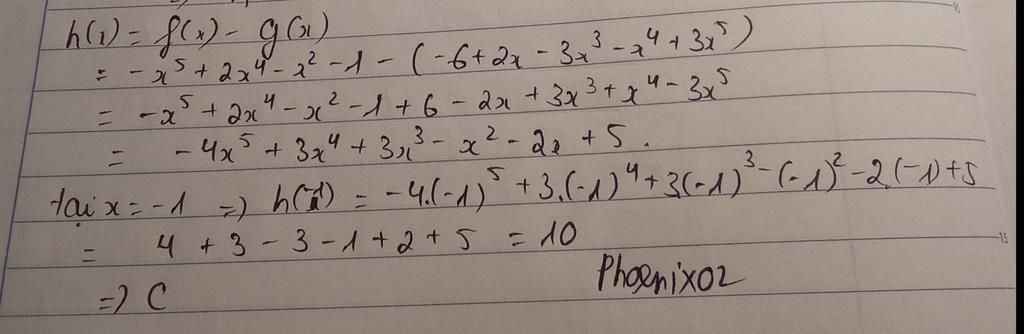 h(x) = f(x) - g(x)
= -x⁵ + 2x⁴ - x² - 1 - (-6 + 2x - 3x³ - x⁴ + 3x⁵)
= -x⁵ + 2x⁴ - x² - 1 + 6 - 2x + 3x³ + x⁴ - 3x⁵
= -4x⁵ + 3x⁴ + 3x³ - x² - 2x + 5.
tại x = -1 => h(-1) = -4.(-1)⁵ + 3.(-1)⁴ + 3(-1)³ - (-1)² - 2.(-1) + 5
= 4 + 3 - 3 - 1 + 2 + 5 = 10
Phoenix02
=> C
15